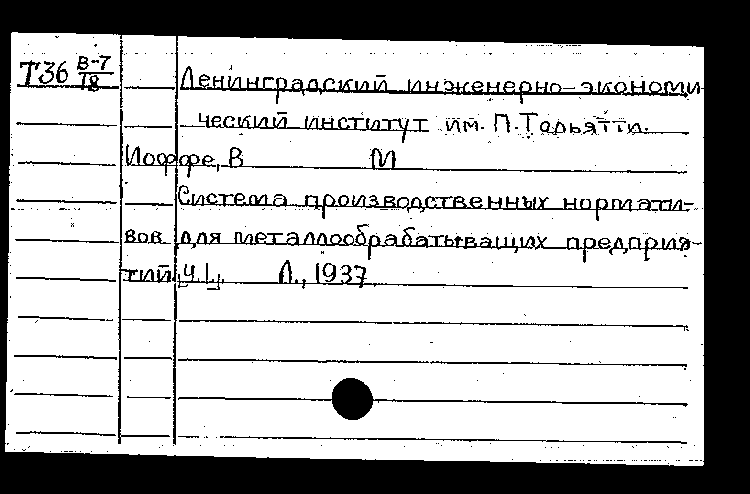 Т36 В-7/18
Ленинградский инженерно-экономи-
ческий институт им. П. Тольятти.
Иоффе, В М
Система производственных нормати-
вов для металлообрабатыващих предприя-
тий, Ч. I, Л., 1937